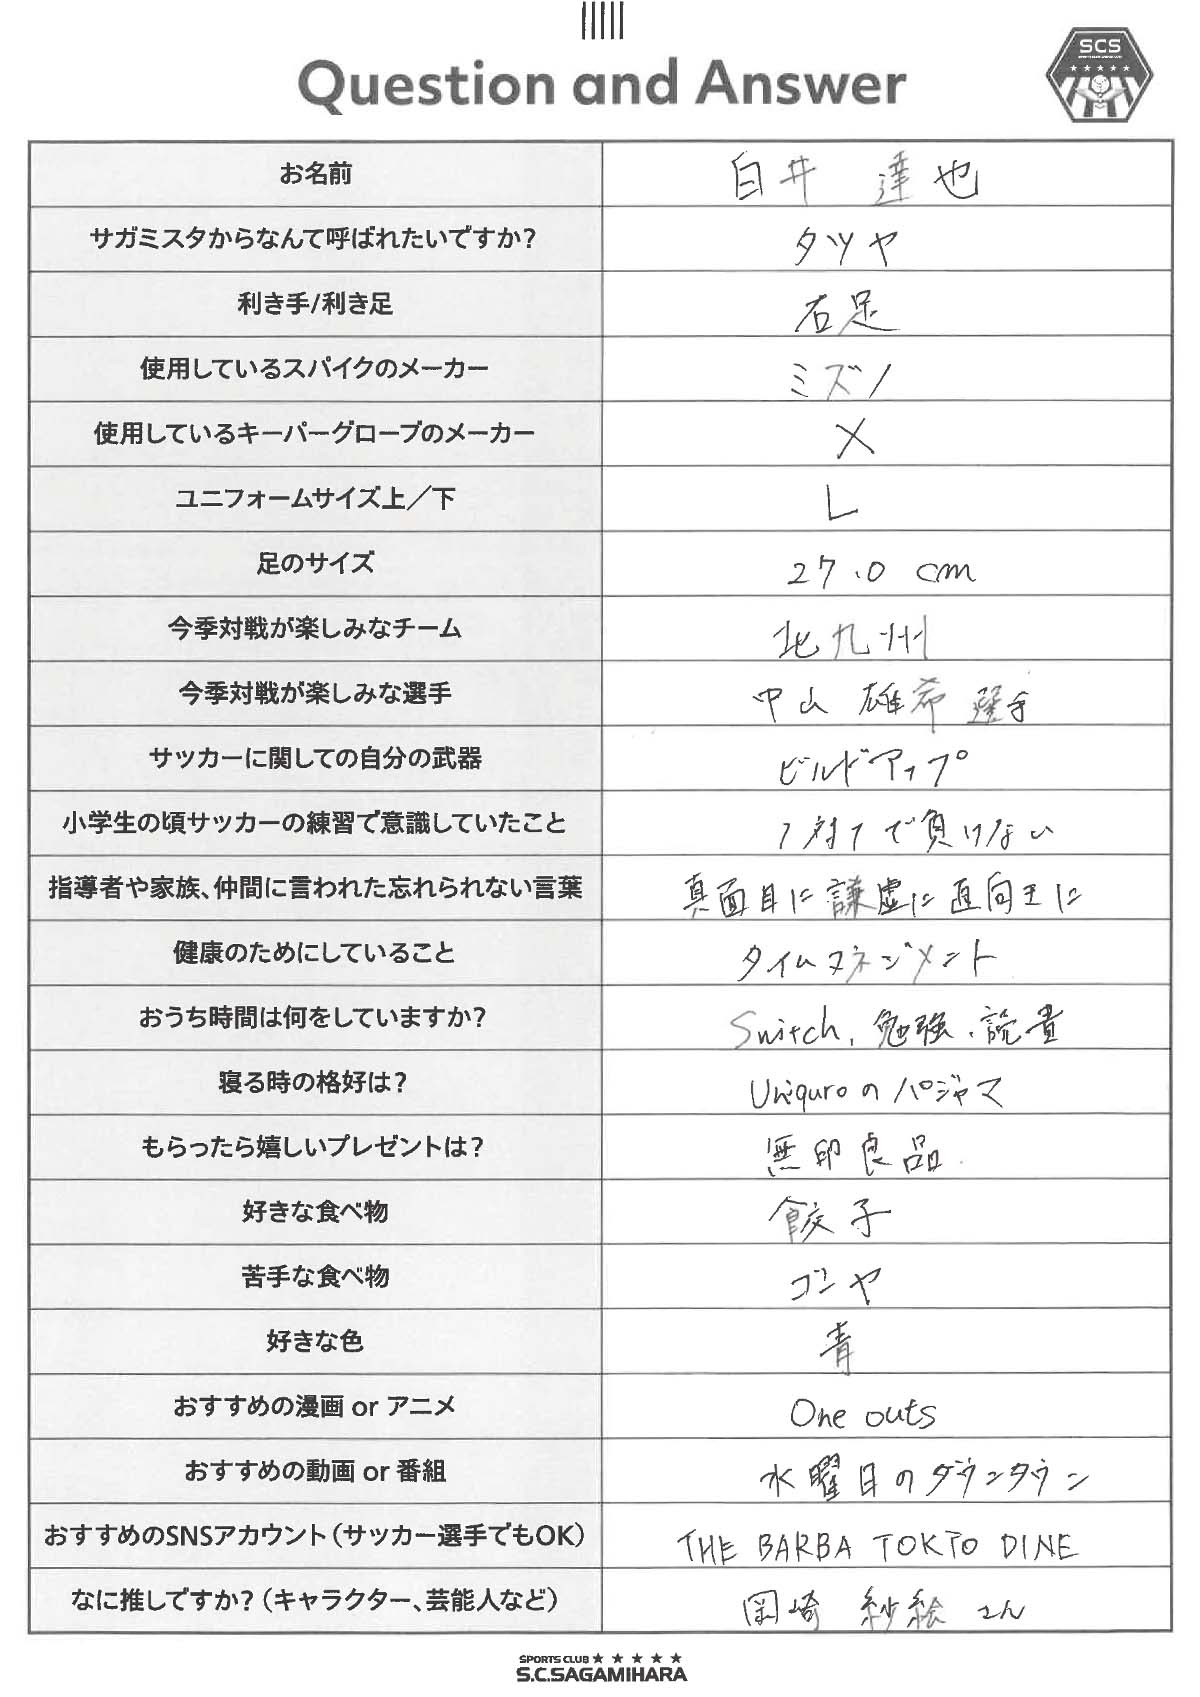 Question and Answer
SCS
お名前 白井 達也
サガミスタからなんて呼ばれたいですか? タツヤ
利き手/利き足 右足
使用しているスパイクのメーカー ミズノ
使用しているキーパーグローブのメーカー ×
ユニフォームサイズ上／下 L
足のサイズ 27.0 cm
今季対戦が楽しみなチーム 北九州
今季対戦が楽しみな選手 中山 雄希 選手
サッカーに関しての自分の武器 ビルドアップ
小学生の頃サッカーの練習で意識していたこと 1対1で負けない
指導者や家族、仲間に言われた忘れられない言葉 真面目に謙虚に直向きに
健康のためにしていること タイムマネジメント
おうち時間は何をしていますか? Switch、勉強、読書
寝る時の格好は? Uniquroのパジャマ
もらったら嬉しいプレゼントは? 無印良品
好きな食べ物 餃子
苦手な食べ物 ゴーヤ
好きな色 青
おすすめの漫画 or アニメ One outs
おすすめの動画 or 番組 水曜日のダウンタウン
おすすめのSNSアカウント（サッカー選手でもOK） THE BARBA TOKYO DINE
なに推しですか?（キャラクター、芸能人など） 岡崎 紗絵 さん
SPORTS CLUB ★ ★ ★ ★ ★
S.C.SAGAMIHARA